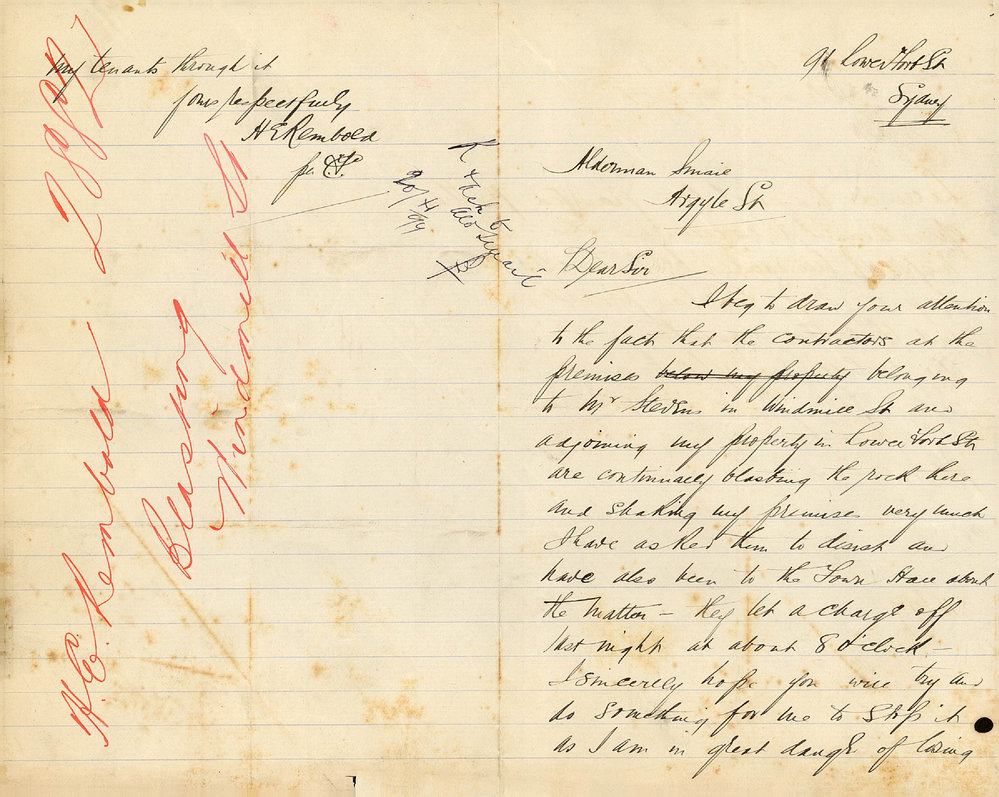 91 Lower Fort St
Sydney
Alderman
Argyle St
Dear Sir
I beg to draw your attention
to the fact that the contractors at the
premises below my property belonging
to Mr Stevens in Windmill St and
adjoining my property in Lower Fort St
are continually blasting the rock there
and shaking my premises very much
I have asked them to desist and
have also been to the Town Hall about
the matter – they let a charge off
last night at about 8 o'clock –
I sincerely hope you will try and
do something for me to stop it
as I am in great danger of losing
my tenants through it
Yours respectfully
H E Rembold
per
20/4/99
H. E. Rembold
Blasting
Windmill St